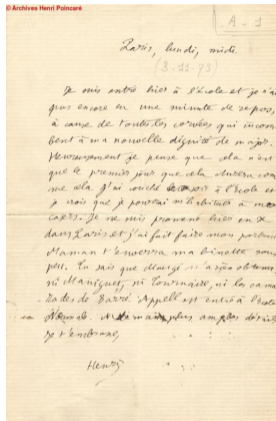 © Archives Henri Poincaré
A - 1
Paris, lundi, midi.
(3-11-73)
Je suis entré hier à l'École et je n'ai
pas encore eu une minute de repos,
à cause de toutes les corvées qui incom
bent à ma nouvelle dignité de major.
Heureusement je pense que cela n'est
que le premier jour que cela durera com
me cela. J'ai couché à l'école et
je crois que je pourrai m'habituer à mon
casers. Je me suis promené hier en
dans Paris et j'ai fait faire mon portrait
Maman t'enverra ma binette sous
peu. Tu sais que n'a rien obtenu
ni ni Tournaire, ni les ca ma
rades de Barré. Appell est entré à l'école
Normale. A demain plus amples détails
Je t'embrasse,
Henri